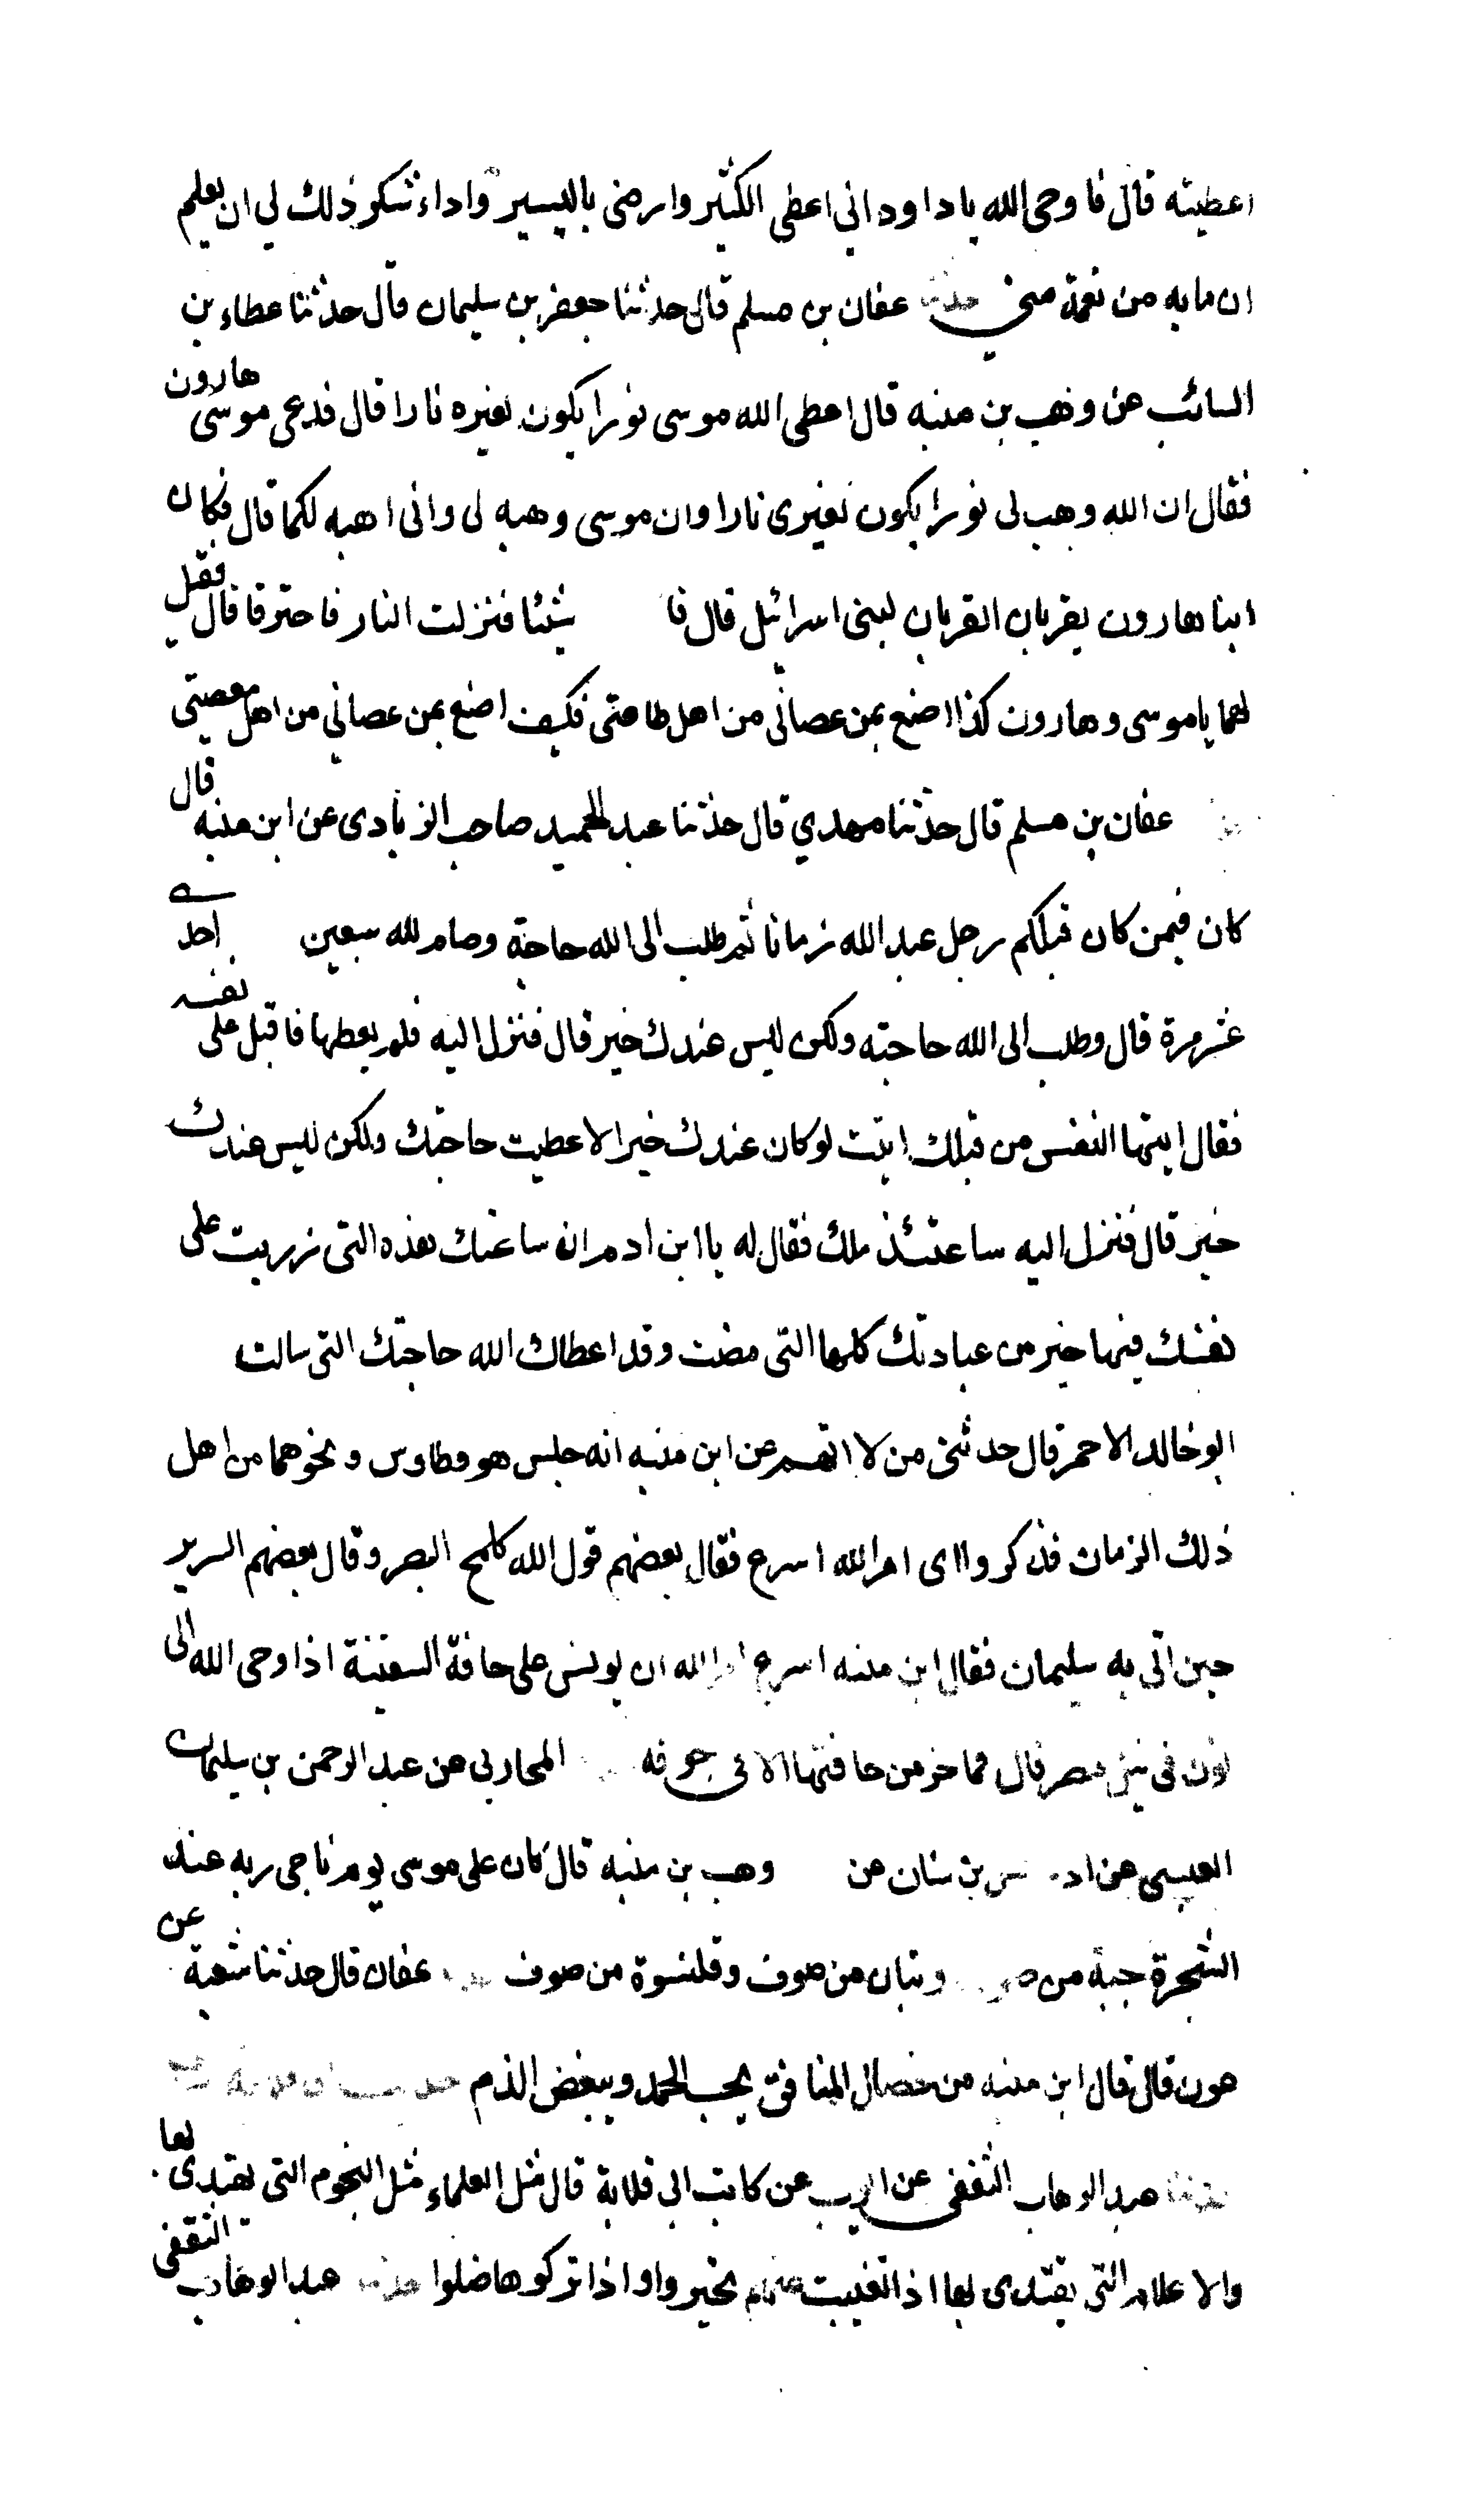 اعطيته قال فاوحى الله ياداود اني اعطي الكثير وارضى باليسير واداء شكر ذلك لي ان يعلم
ان مابه من نعمة مني حدثنا عفان بن مسلم قال حدثنا جعفر بن سليمان قال حدثنا عطاء بن
السائب عن وهب بن منبه قال اعطى الله موسى نورا يكون لغيره نارا قال فدعى موسى هارون
فقال ان الله وهب لى نورا يكون لغيرى نارا وان موسى وهبه لى وانى اهبه لكما قال فكان
ابنا هارون يقربان القربان لبنى اسرائيل قال فا شيئا فنزلت النار فاحترقا فال فقيل
لهما ياموسى وهارون كذا اضع بمن عصاني من اهل طاعتى فكيف اضع بمن عصاني من اهل معصيتى
عفان بن مسلم قال حدثنا مهدي قال حدثنا عبد الحميد صاحب الزيادى عن ابن منبه قال
كان فيمن كان قبلكم رجل عبد الله زمانا ثم طلب الى الله حاجة وصام لله سبعين احد
عشر مرة قال وطلب الى الله حاجته ولكن ليس عندك خير قال فنزل اليه فلم يعطها فاقبل على نفسه
فقال ايتها النفس من قبلك اتيت لو كان عندك خير الاعطيت حاجتك ولكن ليس عندك
خير قال فنزل اليه ساعتئذ ملك فقال له يا ابن ادم ان ساعتك هذه التى زريت على
نفسك فيها خير من عبادتك كلها التى مضت وقد اعطاك الله حاجتك التى سالت
ابو خالد الاحمر قال حدثني من لا اتهم عن ابن منبه انه جلس هو وطاوس ونحوهما من اهل
ذلك الزمان فذكروا اى امر الله اسرع فقال بعضهم قول الله كلمح البصر وقال بعضهم السرير
حين اتى به سليمان فقال ابن منبه اسرع امر الله ان يونس على حافة السفينة اذ اوحى الله الى
نون فى نيل مصر قال فما خر من حافتها الا فى جوفه المحاربى عن عبد الرحمن بن سليمان
العبسى عن ادريس بن سنان عن وهب بن منبه قال كان على موسى يوم ناجى ربه عند
الشجرة جبة من صوف وتبان من صوف وقلنسوة من صوف عفان قال حدثنا شعبة عن
عون قال قال ابن منبه من خصال المنافق يحب الحمد ويبغض الذم
حدثنا عبد الوهاب الثقفى عن ايوب عن كاتب ابى قلابة قال مثل العلماء مثل النجوم التى يهتدى بها
والاعلام التى يقتدى بها اذا تغيبت عنهم تحيروا واذا تركوها ضلوا حدثنا عبد الوهاب الثقفى